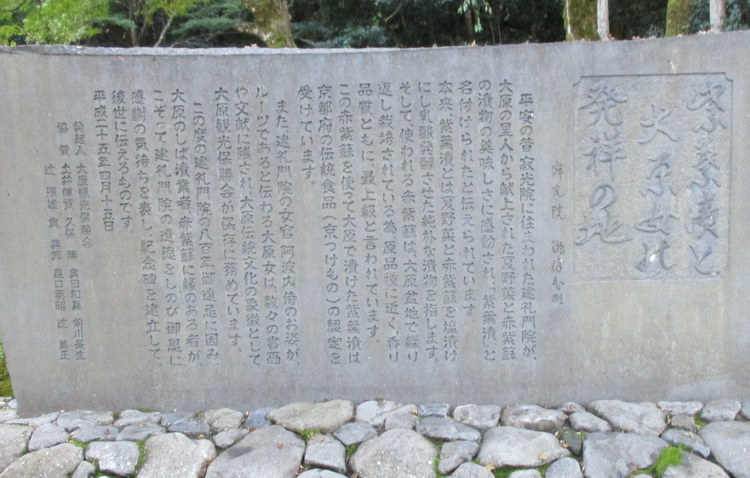 紫葉漬と
大原女の
発祥の地
平安の昔寂光院に住まわれた建礼門院が、
大原の里人から献上された夏野菜と赤紫蘇
の漬物の美味しさに感動され、紫葉漬と
名付けられたと伝えられています。
本来、紫葉漬とは夏野菜と赤紫蘇を塩漬け
にし乳酸発酵させた純朴な漬物を指します。
そして、使われる赤紫蘇は、大原盆地で繰り
返し栽培されている為原品種に近く、香り
品質ともに、最上級と言われています。
この赤紫蘇を使って大原で漬けた紫葉漬は
京都府の伝統食品(京つけもの)の認定を
受けています。
また建礼門院の女官阿波内侍のお姿が、
ルーツであると伝わる大原女は、数々の書画
や文献に残され、大原伝統文化の象徴として
大原観光保勝会が保存に務めています。
この度の建礼門院の八百年御遠忌に因み、
大原のしば漬業者、赤紫蘇に縁のある者が、
こぞって建礼門院の遺徳をしのび御恩に
感謝の気持ちを表し、記念碑を建立して、
後世に伝えるものです。
平成二十五年四月十五日
発起人 大原観光保勝会
協賛 土井 久保 勝 前川長生
辻 森口 辻 美正